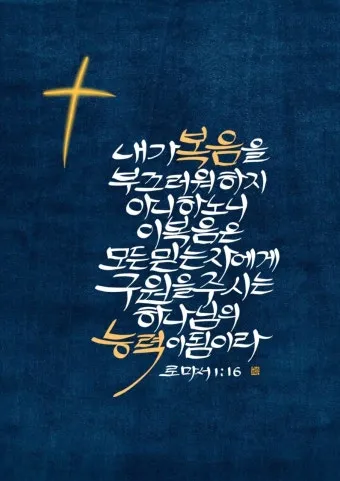 내가 복음을
부끄러워하지
아니하노니
이 복음은
모든 믿는 자에게
구원을 주시는
하나님의
능력이 됨이라
로마서 1:16